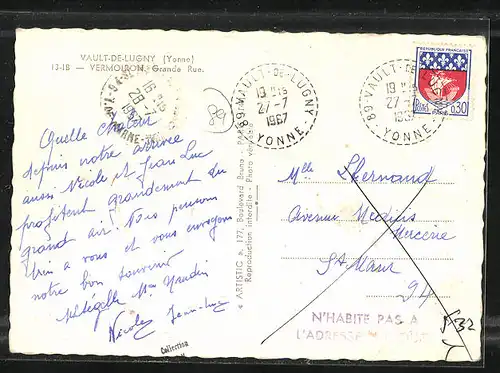 VAULT-DE-LUGNY (Yonne)
13-18 - VERMOIRON, Grande Rue.
18 H15
28-7
1967
Quelle chaleur
depuis notre arrivée
aussi Nicole et Jean Luc
profitent grandement du
grand air. Nous pensons
bien a vous et vous envoyons
notre bon souvenir
Nicole Jean-Luc
« ARTISTIC », 177, Boulevard Brune - PARIS
Reproduction interdite - Photo véritable
Collection
89 VAULT-DE-LUGNY
19 H15
27-7
1967
YONNE
89 VAULT-DE-LUGNY
19 H15
27-7
1967
YONNE
REPUBLIQUE FRANÇAISE
0,30
PARIS
Mlle Lhernaud
Avenue Medicis
Mercerie
St Maur
94
N'HABITE PAS A
L'ADRESSE
532